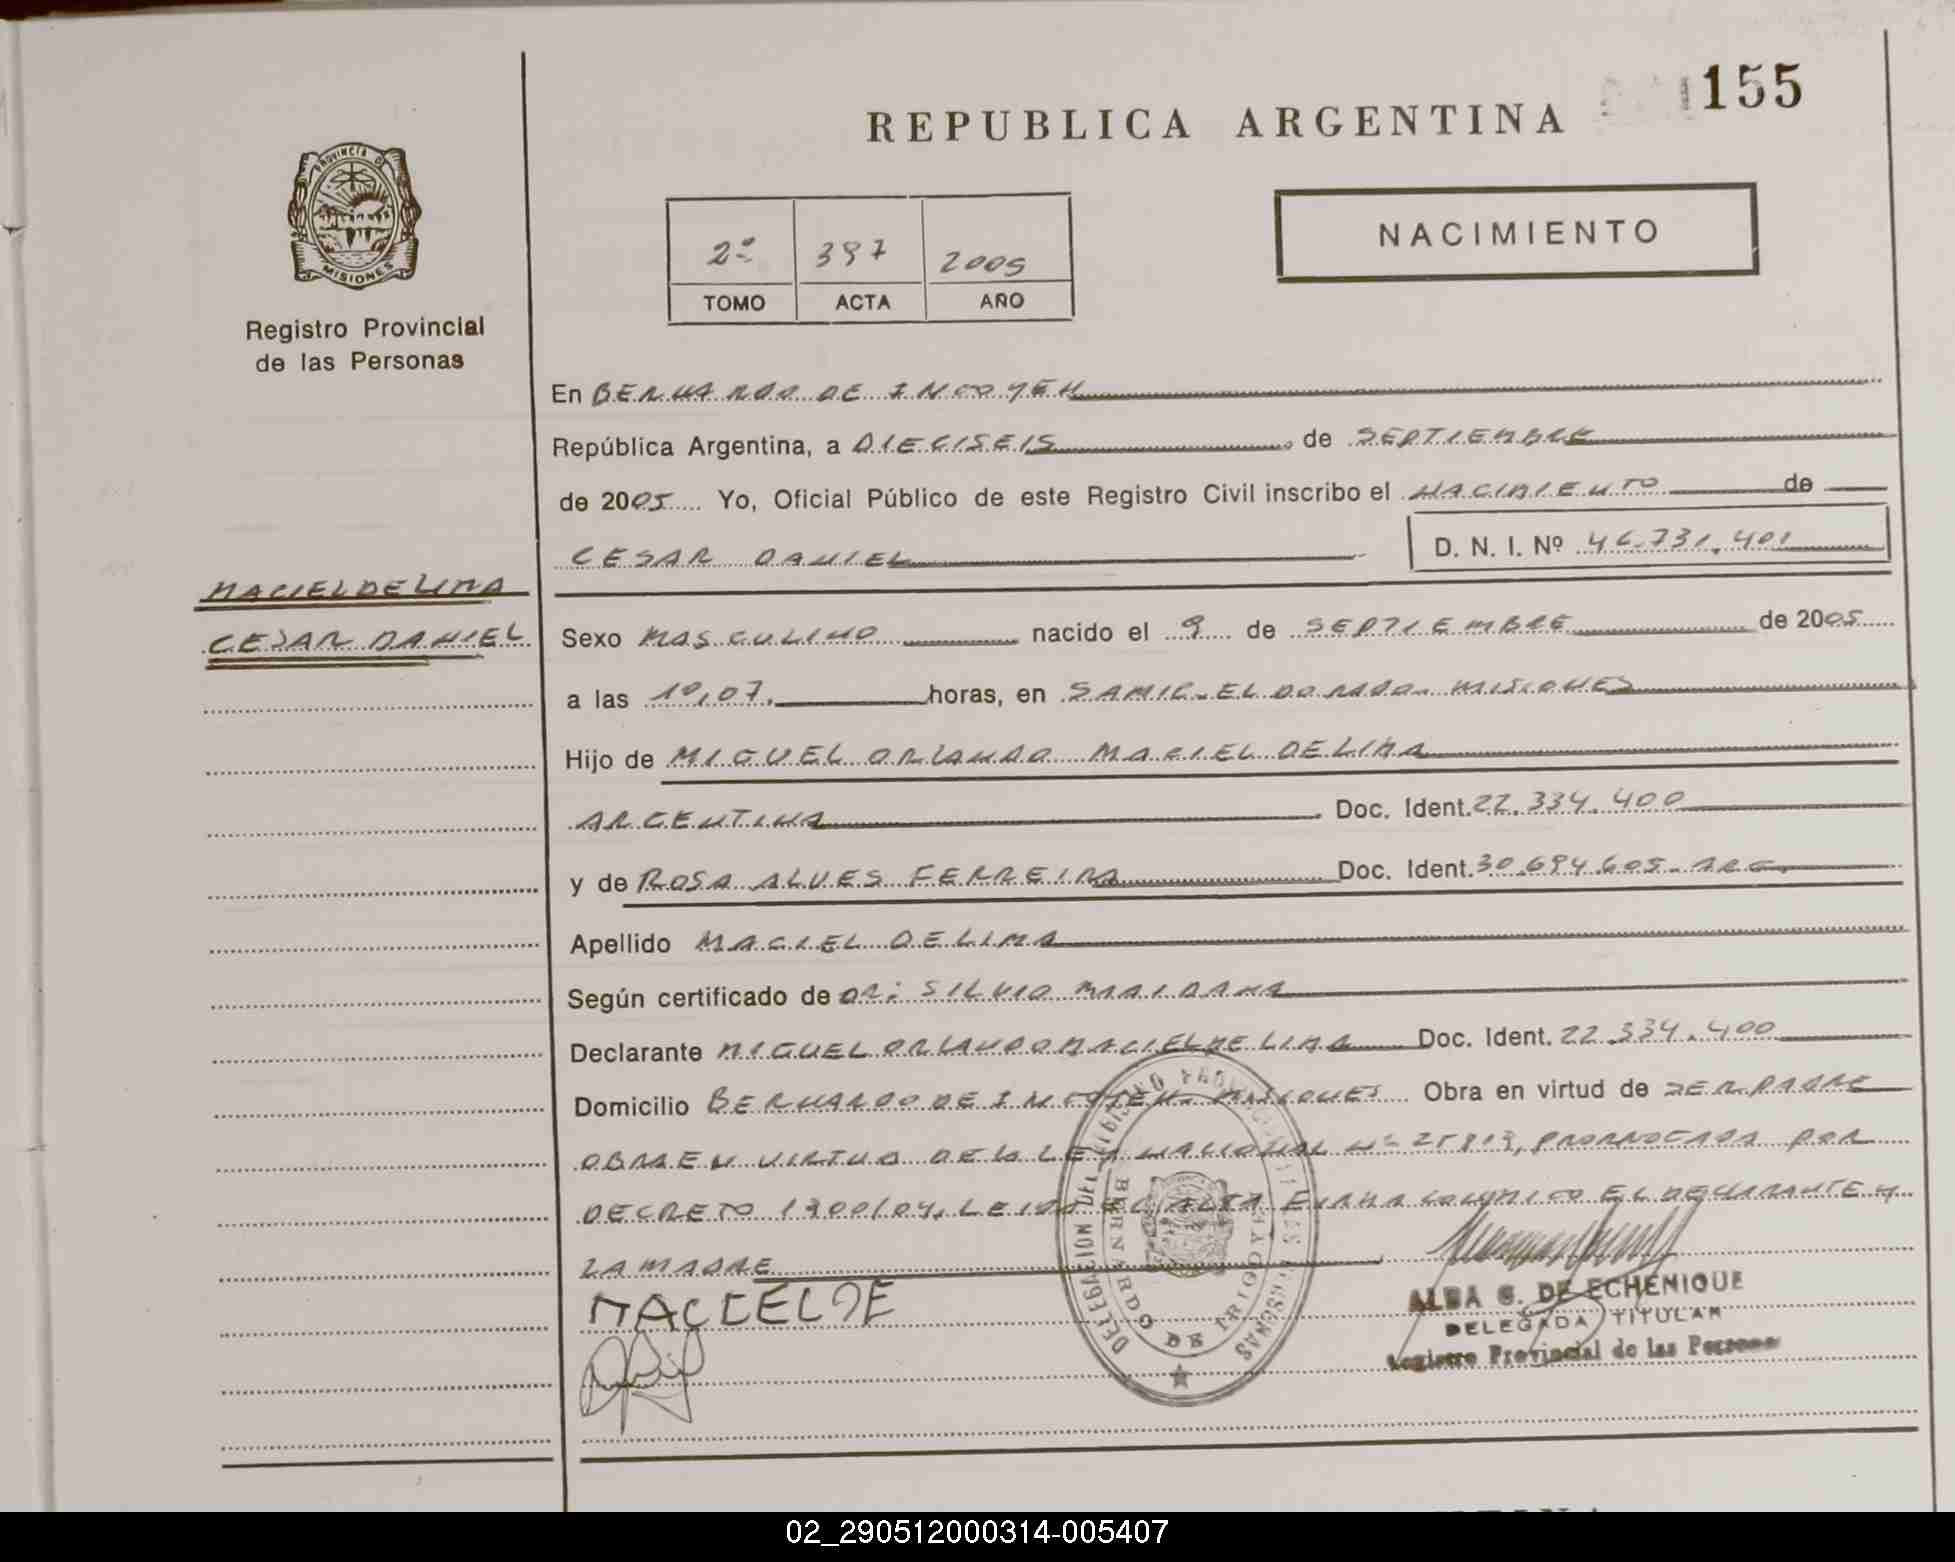 155
REPUBLICA ARGENTINA
PROVINCIA D
MISIONES
Registro Provincial
de las Personas
NACIMIENTO
2º 397 2005
TOMO ACTA AÑO
En BERNARDO DE IRIGOYEN
República Argentina, a DIECISEIS de SEPTIEMBRE
de 2005 Yo, Oficial Público de este Registro Civil inscribo el NACIMIENTO de
CESAR DANIEL D. N. I. Nº 46.731.401
MACIEL DE LIMA
CESAR DANIEL
Sexo MASCULINO nacido el 9 de SEPTIEMBRE de 2005
a las 10,07. horas, en SAMIC-ELDORADO-MISIONES
Hijo de MIGUEL ORLANDO MACIEL DE LIMA
ARGENTINA Doc. Ident. 22.334.400
y de ROSA ALVES FERREIRA Doc. Ident. 30.694.605-ARG.
Apellido MACIEL DE LIMA
Según certificado de DR: SILVIO MAIDANA
Declarante MIGUEL ORLANDO MACIEL DE LIMA Doc. Ident. 22.334.400
Domicilio BERNARDO DE IRIGOYEN-MISIONES Obra en virtud de SER PADRE
OBRA EN VIRTUD DE LA LEY NACIONAL Nº 25819, PRORROGADA POR
DECRETO 1900/04. LEIDA EL ACTA FIRMA CONMIGO EL DECLARANTE Y
LA MADRE
MACIEL DE
DELEGACION DEL REGISTRO PROVINCIAL DE LAS PERSONAS
BERNARDO DE IRIGOYEN
ALBA G. DE ECHENIQUE
DELEGADA TITULAR
Registro Provincial de las Personas
02_290512000314-005407